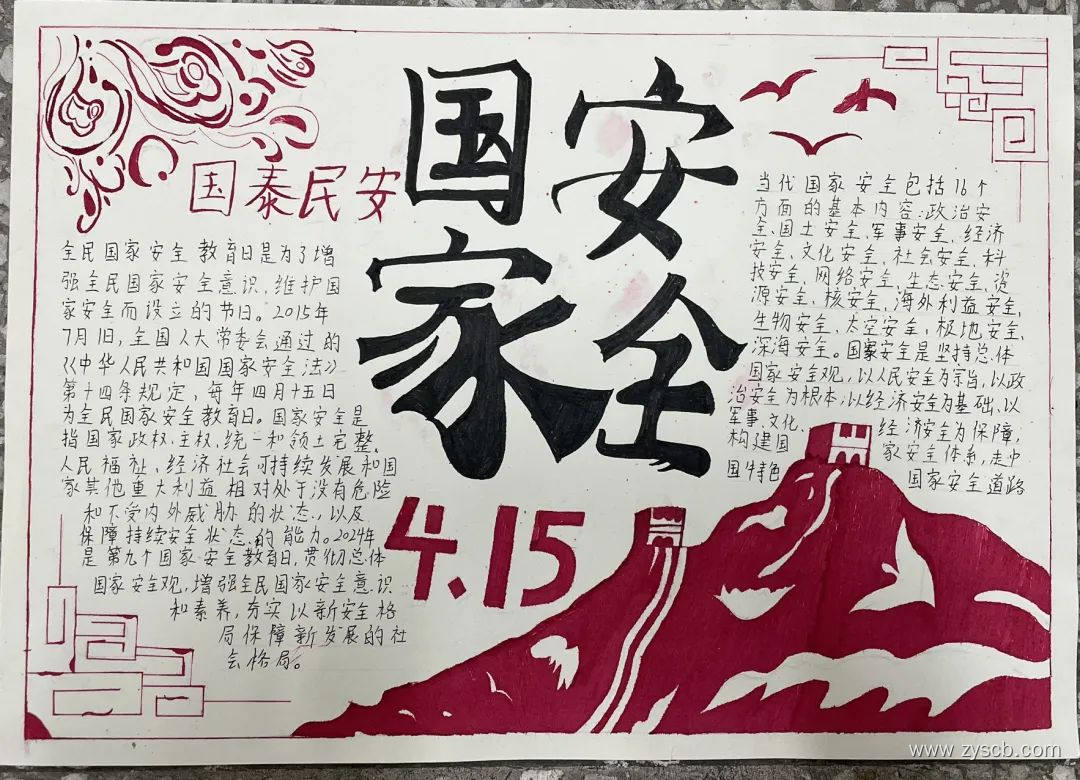 国家
安全
国泰民安
全民国家安全教育日是为了增
强全民国家安全意识,维护国
家安全而设立的节日。2015年
7月1日,全国人大常委会通过的
《中华人民共和国国家安全法》
第十四条规定,每年四月十五日
为全民国家安全教育日。国家安全是
指国家政权、主权、统一和领土完整、
人民福祉、经济社会可持续发展和国
家其他重大利益相对处于没有危险
和不受内外威胁的状态,以及
保障持续安全状态的能力。2024年
是第九个国家安全教育日,贯彻总体
国家安全观,增强全民国家安全意识
和素养,夯实以新安全格
局保障新发展的社
会格局。
4.15
当代国家安全包括16个
方面的基本内容:政治安
全、国土安全、军事安全、经济
安全、文化安全、社会安全、科
技安全、网络安全、生态安全、资
源安全、核安全、海外利益安全、
生物安全、太空安全、极地安全、
深海安全。国家安全是坚持总体
国家安全观,以人民安全为宗旨,以政
治安全为根本,以经济安全为基础、以
军事、文化、经济安全为保障,
构建国家安全体系,走中
国特色国家安全道路
www.zyscb.com